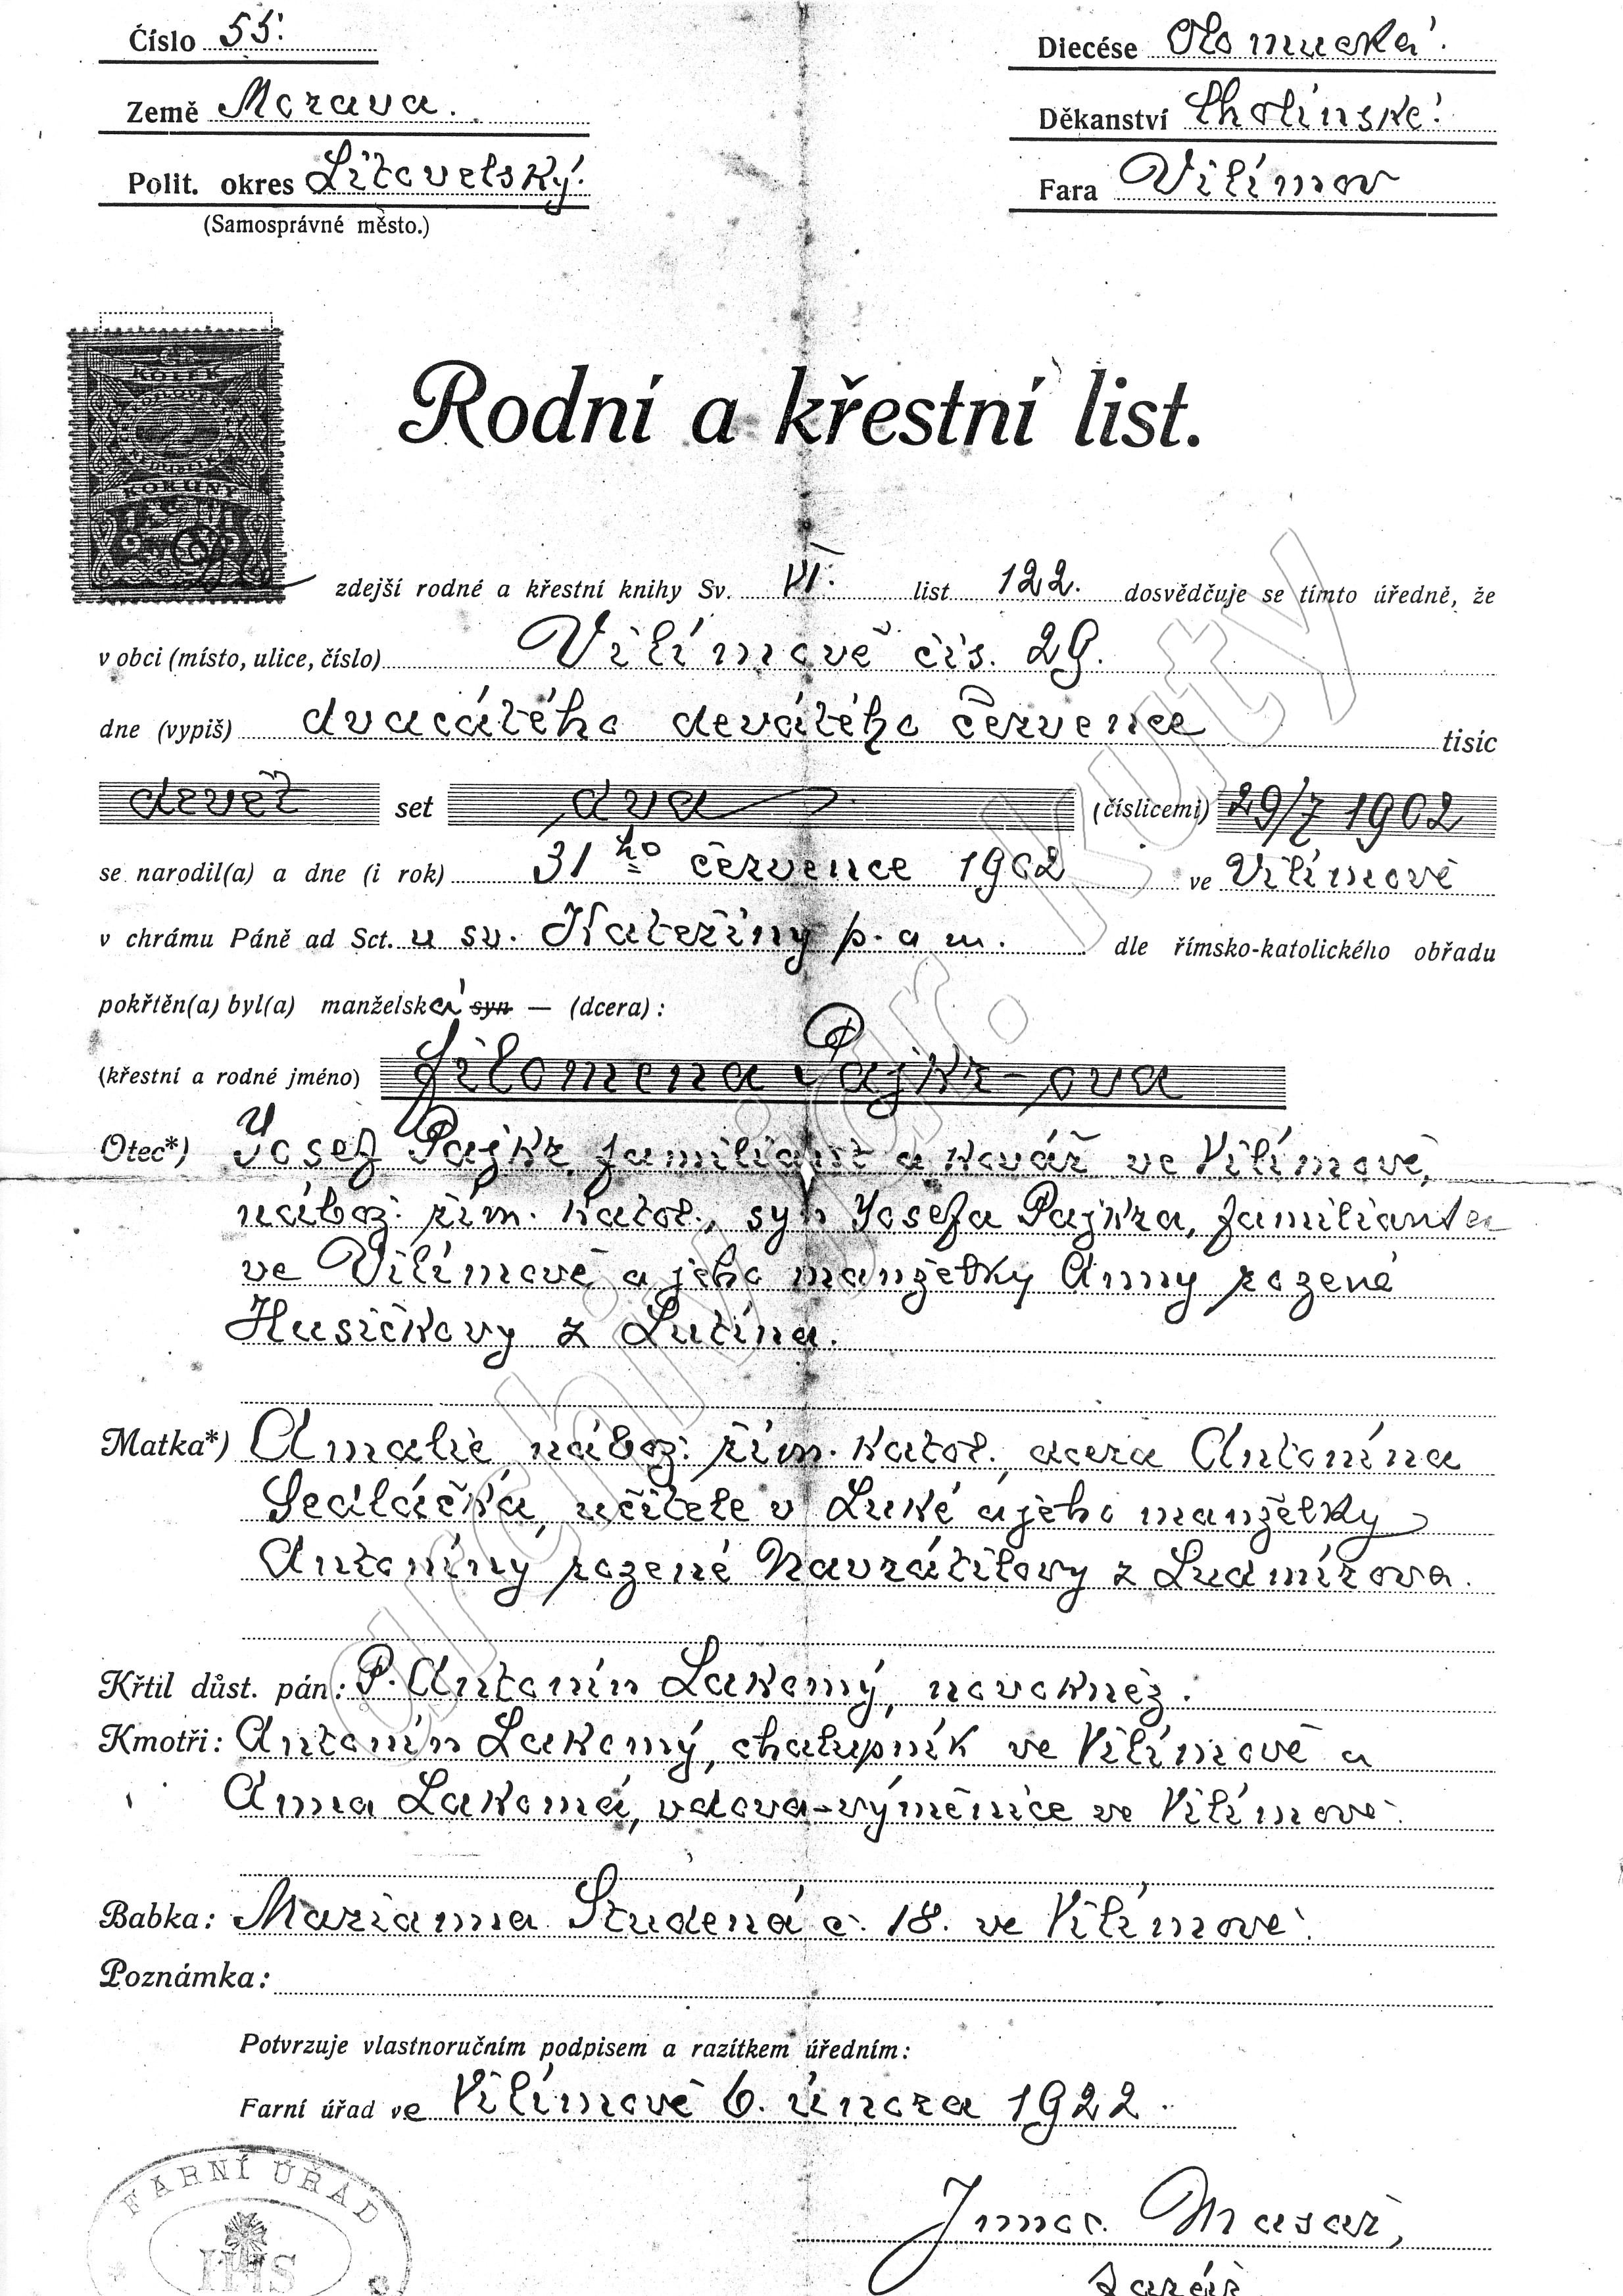 Číslo 55.
Země Morava.
Polit. okres Litovelský.
(Samosprávné město.)
Diecése Olomucká.
Děkanství Cholinské.
Fara Vilímov
KOLEK
KORUNY
Rodní a křestní list.
zdejší rodné a křestní knihy Sv. VI. list 122. dosvědčuje se tímto úředně, že
v obci (místo, ulice, číslo) Vilímově čís. 29.
dne (vypiš) dvacátého devátého července tisíc
devět set dva (číslicemi) 29/7 1902
se narodil(a) a dne (i rok) 31ho července 1902 ve Vilímově
v chrámu Páně ad Sct. u sv. Kateřiny p. a m. dle římsko-katolického obřadu
pokřtěn(a) byl(a) manželská syn — (dcera):
(křestní a rodné jméno) Filomena Pajkr-ova
Otec*) Josef Pajkr, familiant a kovář ve Vilímově,
nábož. řím. katol., syn Josefa Pajkra, familianta
ve Vilímově a jeho manželky Anny rozené
Husičkovy z Lutína.
Matka*) Amalie nábož. řím. katol., dcera Antonína
Sedláčka, učitele v Luké a jeho manželky
Antoníny rozené Navrátilovy z Ludmírova.
Křtil důst. pán: P. Antonín Lakomý, novokněz.
Kmotři: Antonín Lakomý, chalupník ve Vilímově a
Anna Lakomá, vdova-výměnice ve Vilímově.
Babka: Marianna Studená č. 18. ve Vilímově.
Poznámka:
Potvrzuje vlastnoručním podpisem a razítkem úředním:
Farní úřad ve Vilímově 6. února 1922.
FARNÍ ÚŘAD
IHS
Masař,
farář.
archiv jar. kuty